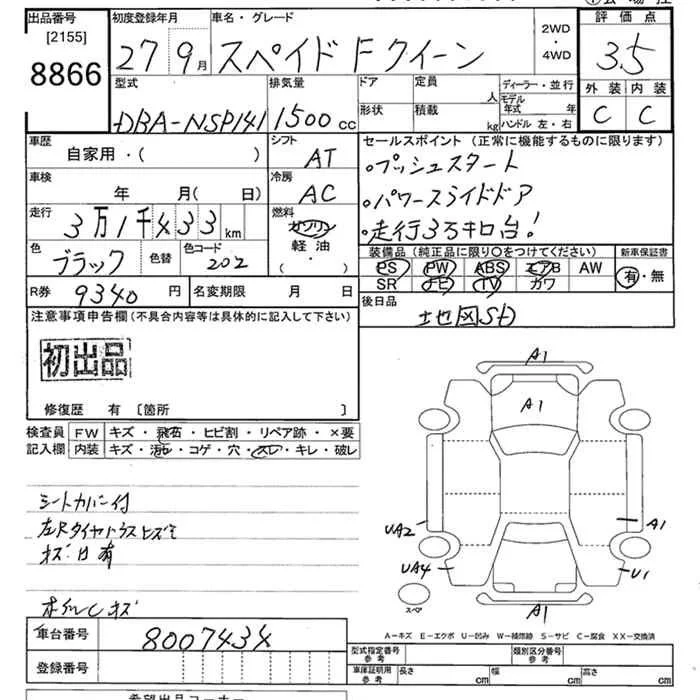 出品番号
[2155]
8866
初度登録年月
27 9月
車名・グレード
スペイド Fクイーン
2WD
・
4WD
評価点
3.5
外装 内装
C C
型式
DBA-NSP141
排気量
1500 cc
ドア
形状
定員
人
積載
kg
ディーラー・並行
モデル年式 年
ハンドル 左・右
車歴
自家用・( )
シフト
AT
車検
年 月( 日)
冷房
AC
走行
3万1千433 km
燃料
ガソリン
軽油
( ・ )
色
ブラック
色替
色コード
202
R券
9340 円
名変期限 月 日
セールスポイント (正常に機能するものに限ります)
・プッシュスタート
・パワースライドドア
・走行3万キロ台!
装備品(純正品に限り○をつけてください)
PS PW ABS エアB AW
SR ナビ TV カワ
新車保証書
有・無
後日品
地図SD
注意事項申告欄(不具合内容等は具体的に記入して下さい)
初出品
修復歴 有 [箇所 ]
検査員
記入欄
FW キズ・飛石・ヒビ割・リペア跡・×要
内装 キズ・汚レ・コゲ・穴・スレ・キレ・破レ
シートカバー付
左Rタイヤハウスヒズミ
キズ・凹有
ホイルCキズ
A1
A1
UA2
A1
UA4
U1
スペア
A1
A-キズ E-エクボ U-凹み W-補修跡 S-サビ C-腐食 XX-交換済
車台番号
8007434
登録番号
型式指定番号
参考
類別区分番号
参考
車庫証明用
参考
長さ cm
幅 cm
高さ cm
希望出品コーナー